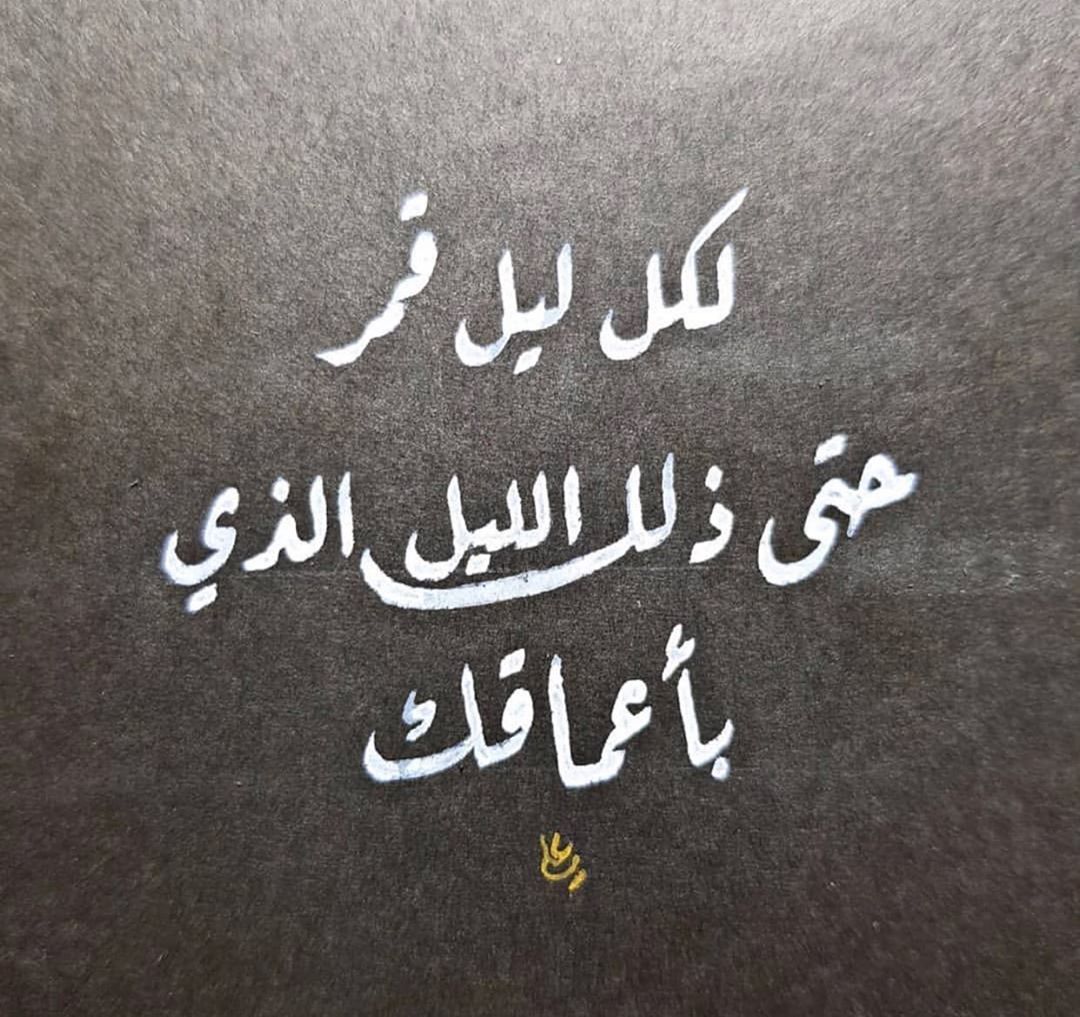 لكل ليل قمر
حتى ذلك الليل الذي
بأعماقك